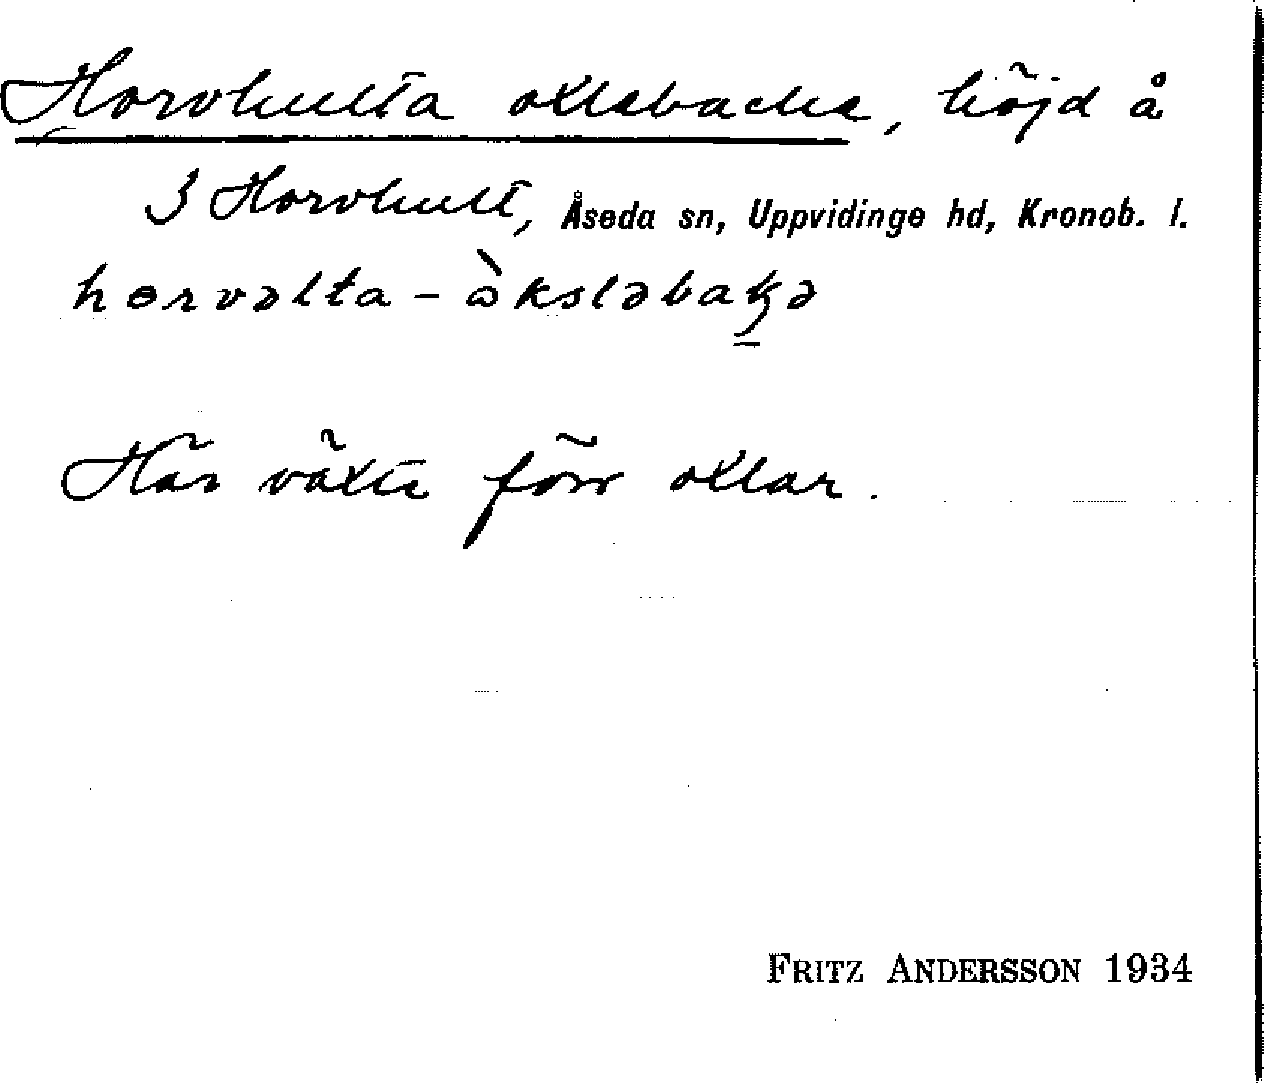 Horvhulta oxlabacke, höjd å
3 Horvhult, Åseda sn, Uppvidinge hd, Kronob. l.
hɵrvəlta - ὼksləbaꞣə
Här växte förr oxlar.
FRITZ ANDERSSON 1934